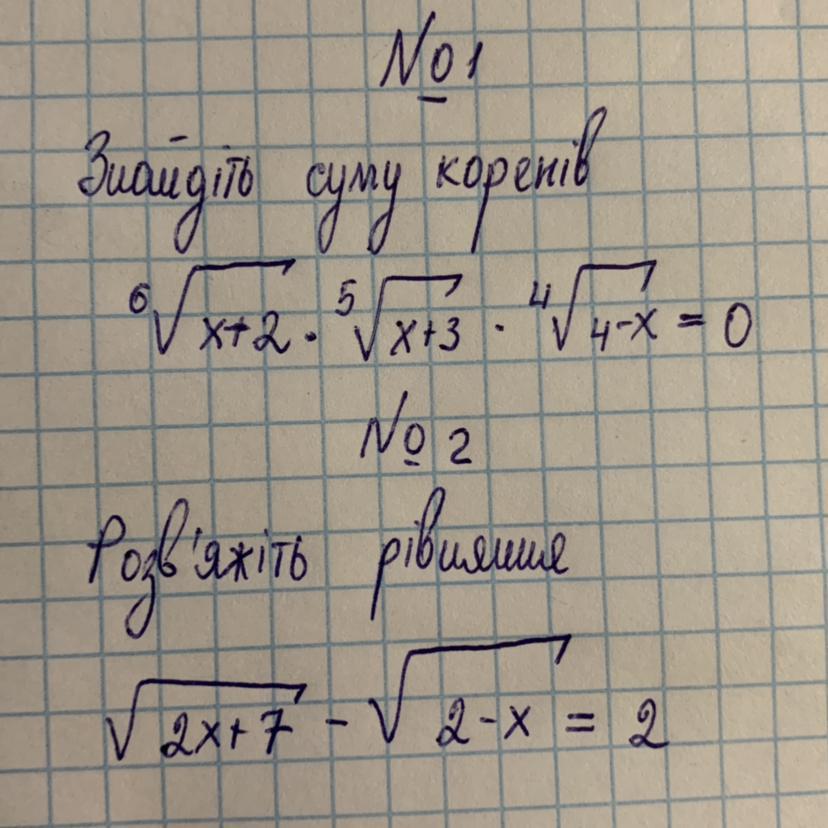 №1
Знайдіть суму коренів
⁶√(x+2) · ⁵√(x+3) · ⁴√(4-x) = 0
№2
Розв'яжіть рівняння
√(2x+7) - √(2-x) = 2